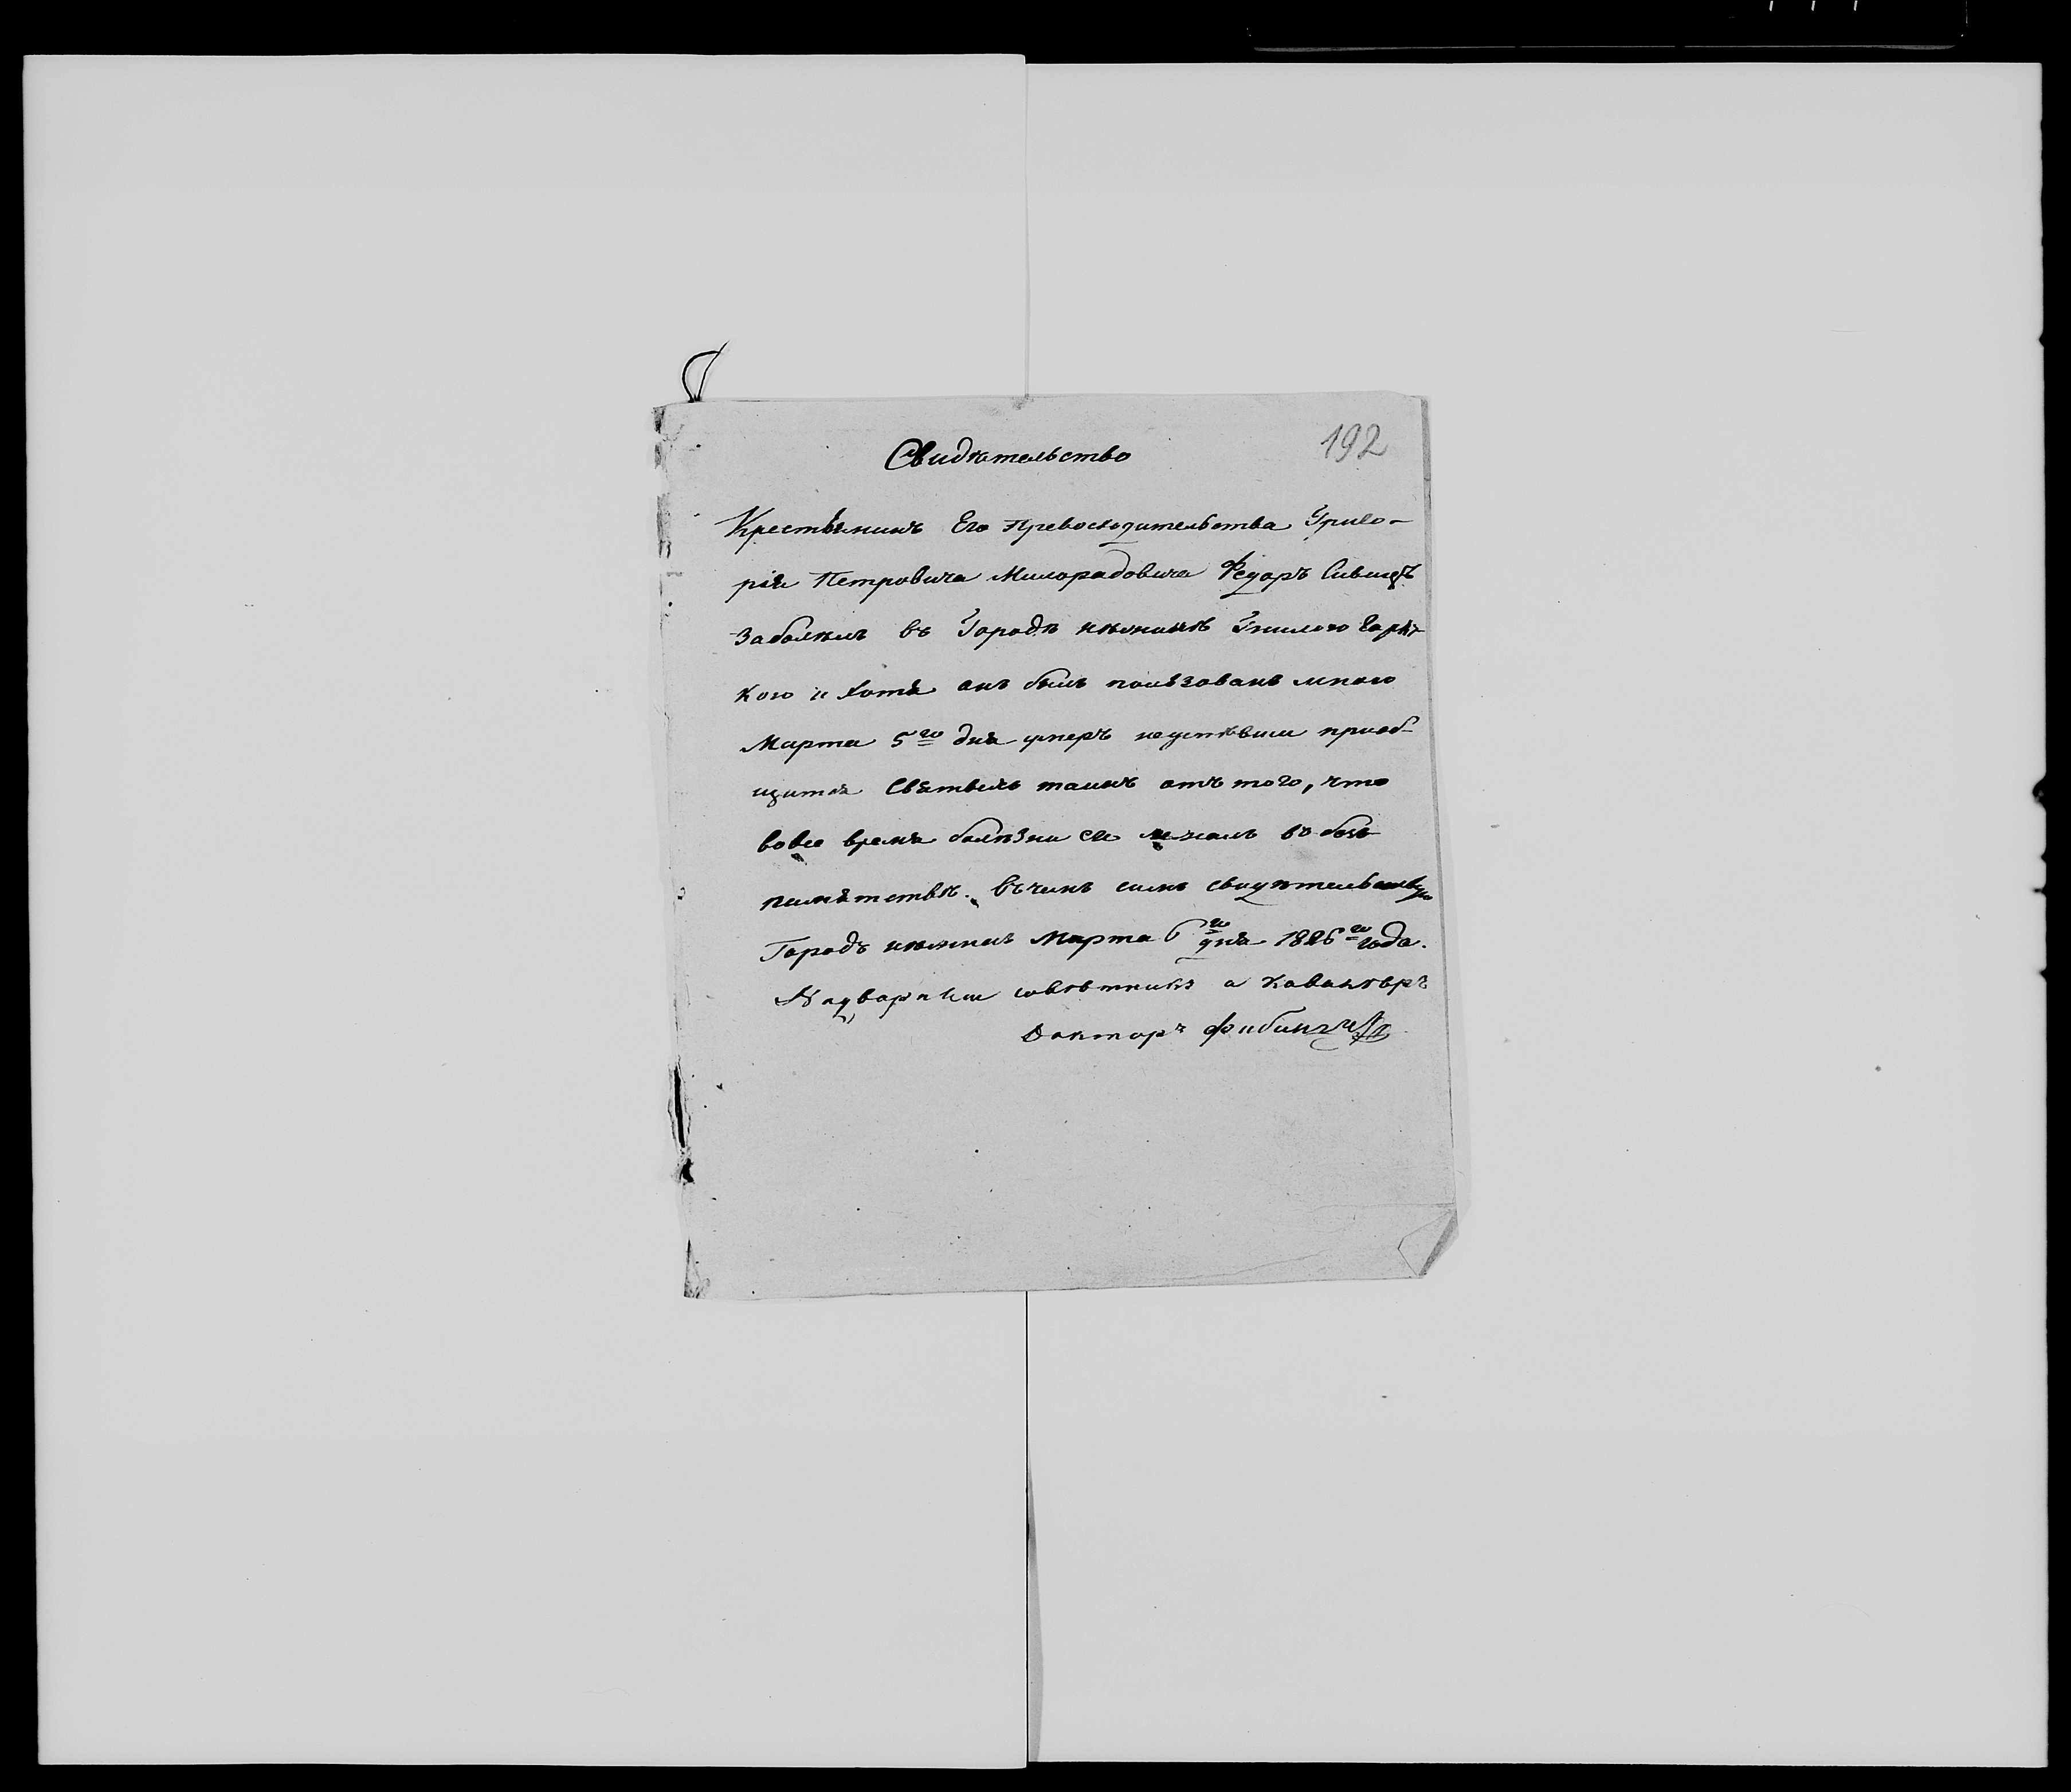 192
Свидѣтельство
Крестьянинъ Его Превосходительства Григо-
рія Петровича Милорадовича Федоръ Сивецъ
заболѣлъ въ Городѣ нѣжинѣ Гнилою Горяч-
кою и хотя онъ былъ пользованъ мною
Марта 5го дня умеръ неуспѣвши приоб-
щится Святыхъ таинъ отъ того, что
вовсе время болѣзни си лежалъ въ безъ
памятствѣ. Въ чемъ симъ свидѣтельствую
Городъ нѣжинъ Марта 6го дня 1826го года.
Надворный совѣтникъ и Кавалеръ
Докторъ